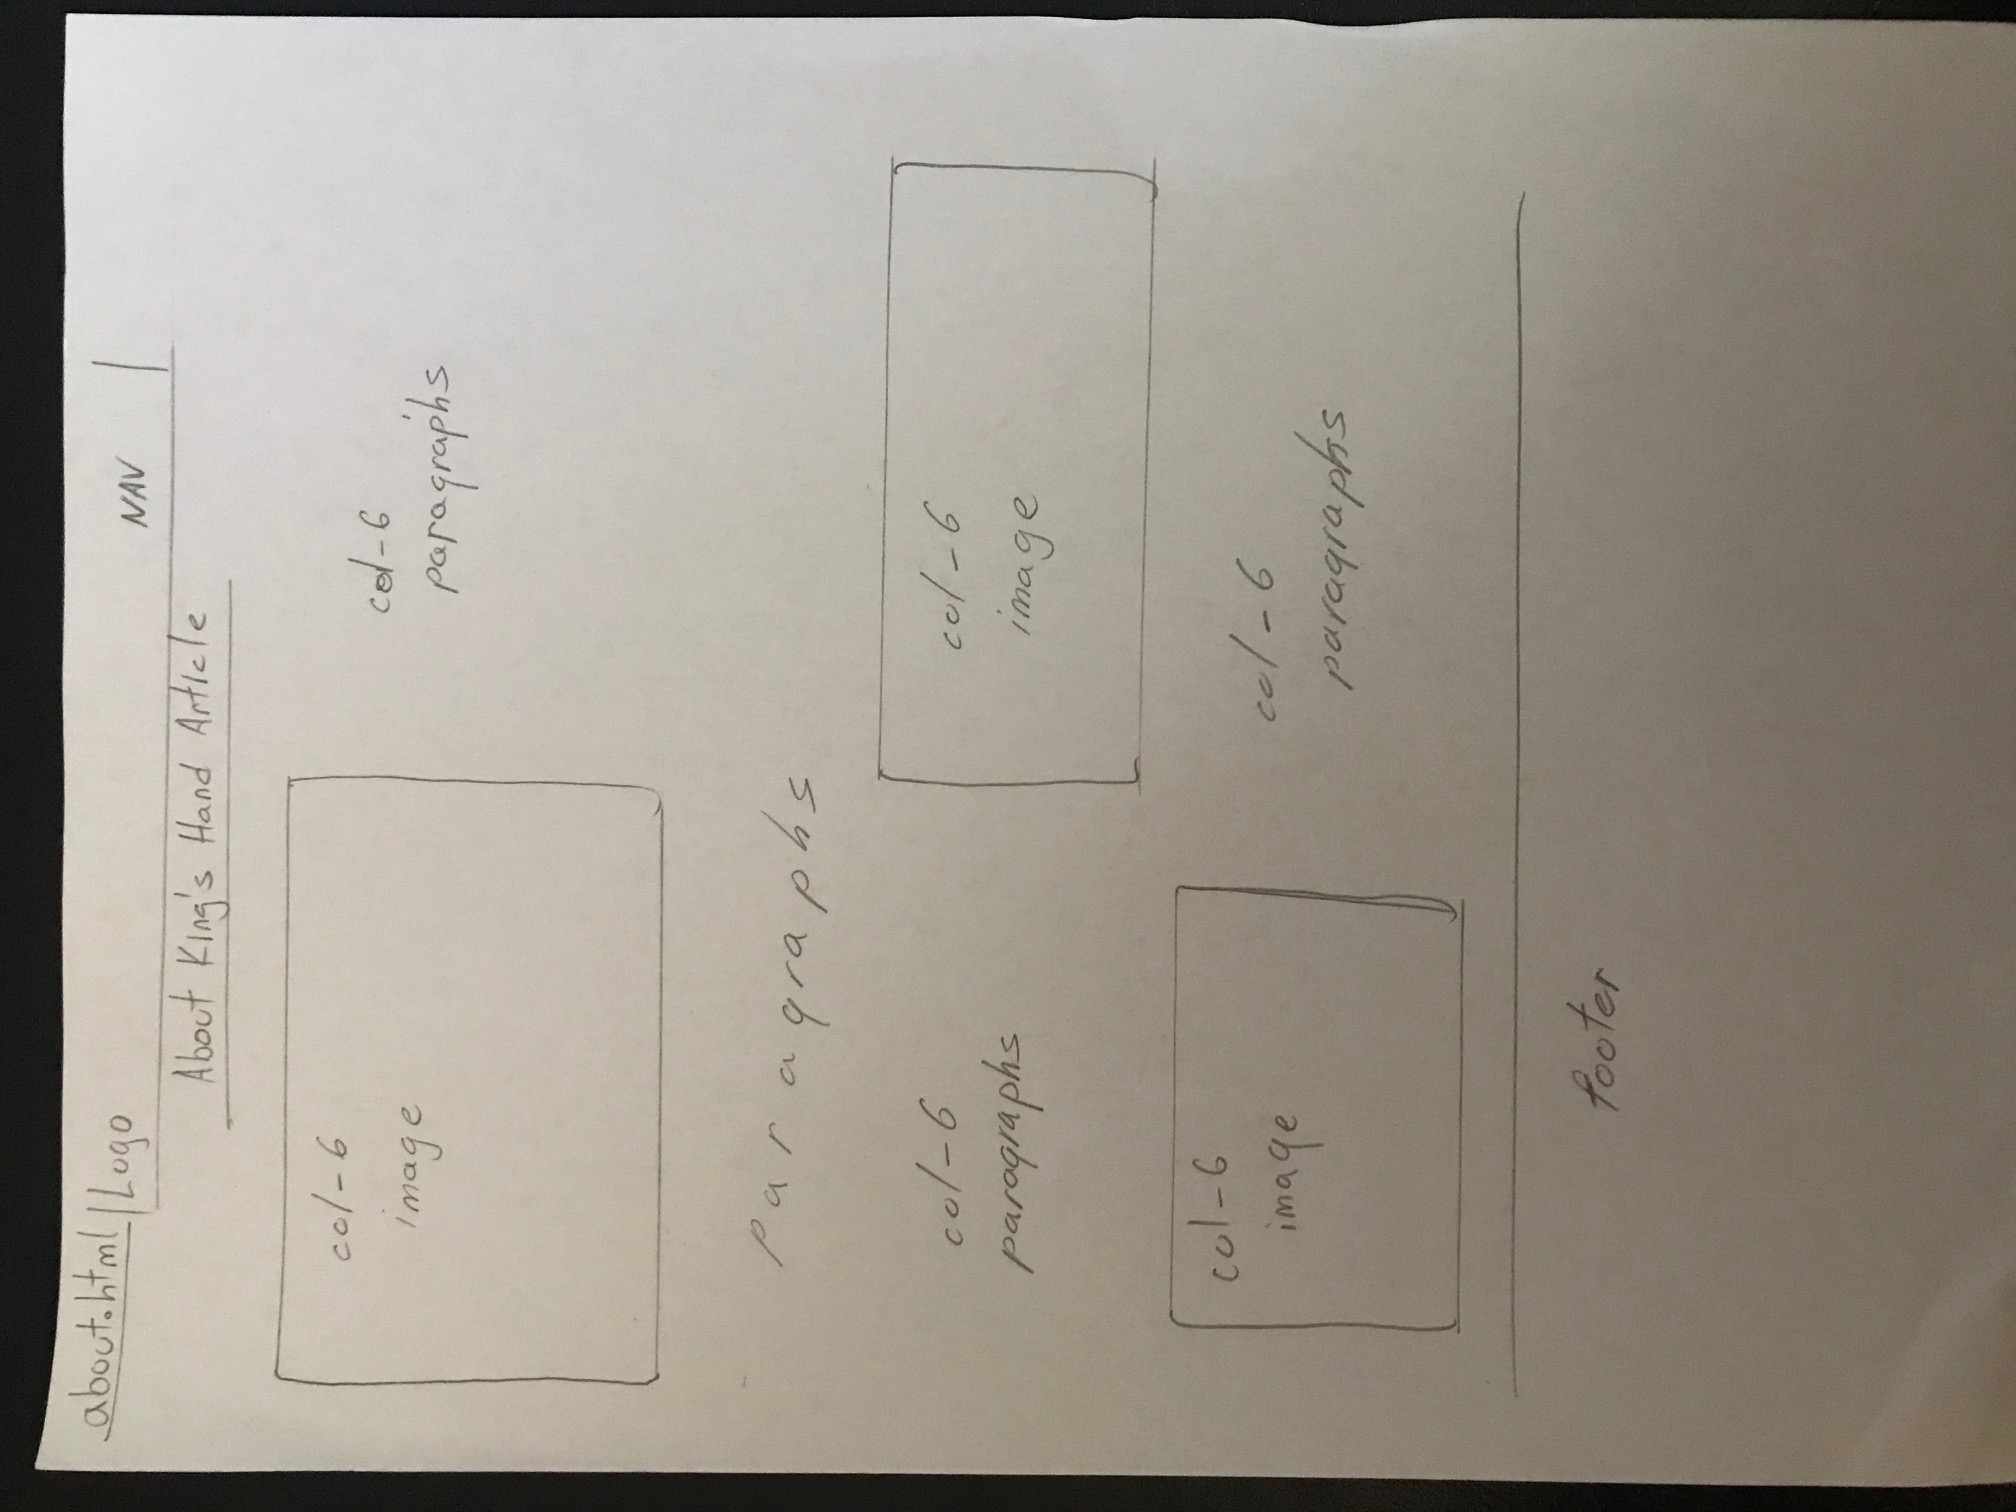 about.html Logo NAV
About King's Hand Article
col-6
image
col-6
paragraphs
paragraphs
col-6
paragraphs
col-6
image
col-6
image
col-6
paragraphs
footer